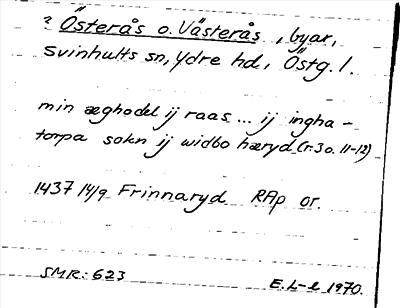 ? Österås o. Västerås, byar,
Svinhults sn, Ydre hd, Östg. l.
min æghodel ij raas ... ij ingha-
torpa sokn ij widbo hæryd (r. 3 o. 11-12)
1437 14/9 Frinnaryd RAp or.
SMR: 623 E. L-e 1970.